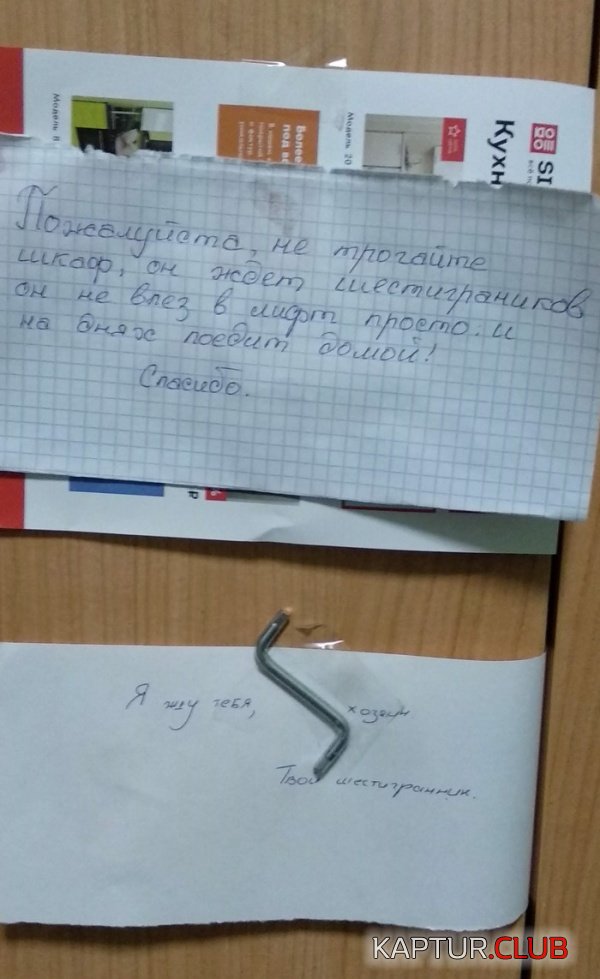 Модель 8
Более
под вс
Модель 20
SI
Кухн
Пожалуйста, не трогайте
шкаф, он ждет шестиграников
он не влез в лифт просто. и
на днях поедит домой!
Спасибо.
Я жду тебя, хозяин
Твой шестигранник.
KAPTUR.CLUB